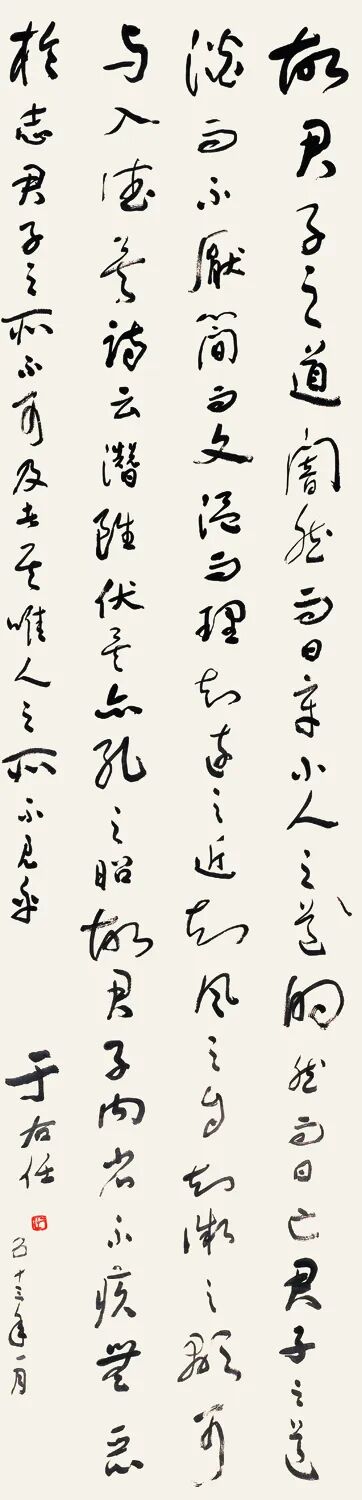 故君子之道闇然而日章小人之道的然而日亡君子之道
淡而不厭簡而文温而理知遠之近知風之自知微之顯可
与入德矣詩云潛雖伏矣亦孔之昭故君子内省不疚無惡
於志君子之所不可及者其唯人之所不見乎
于右任
五十三年一月